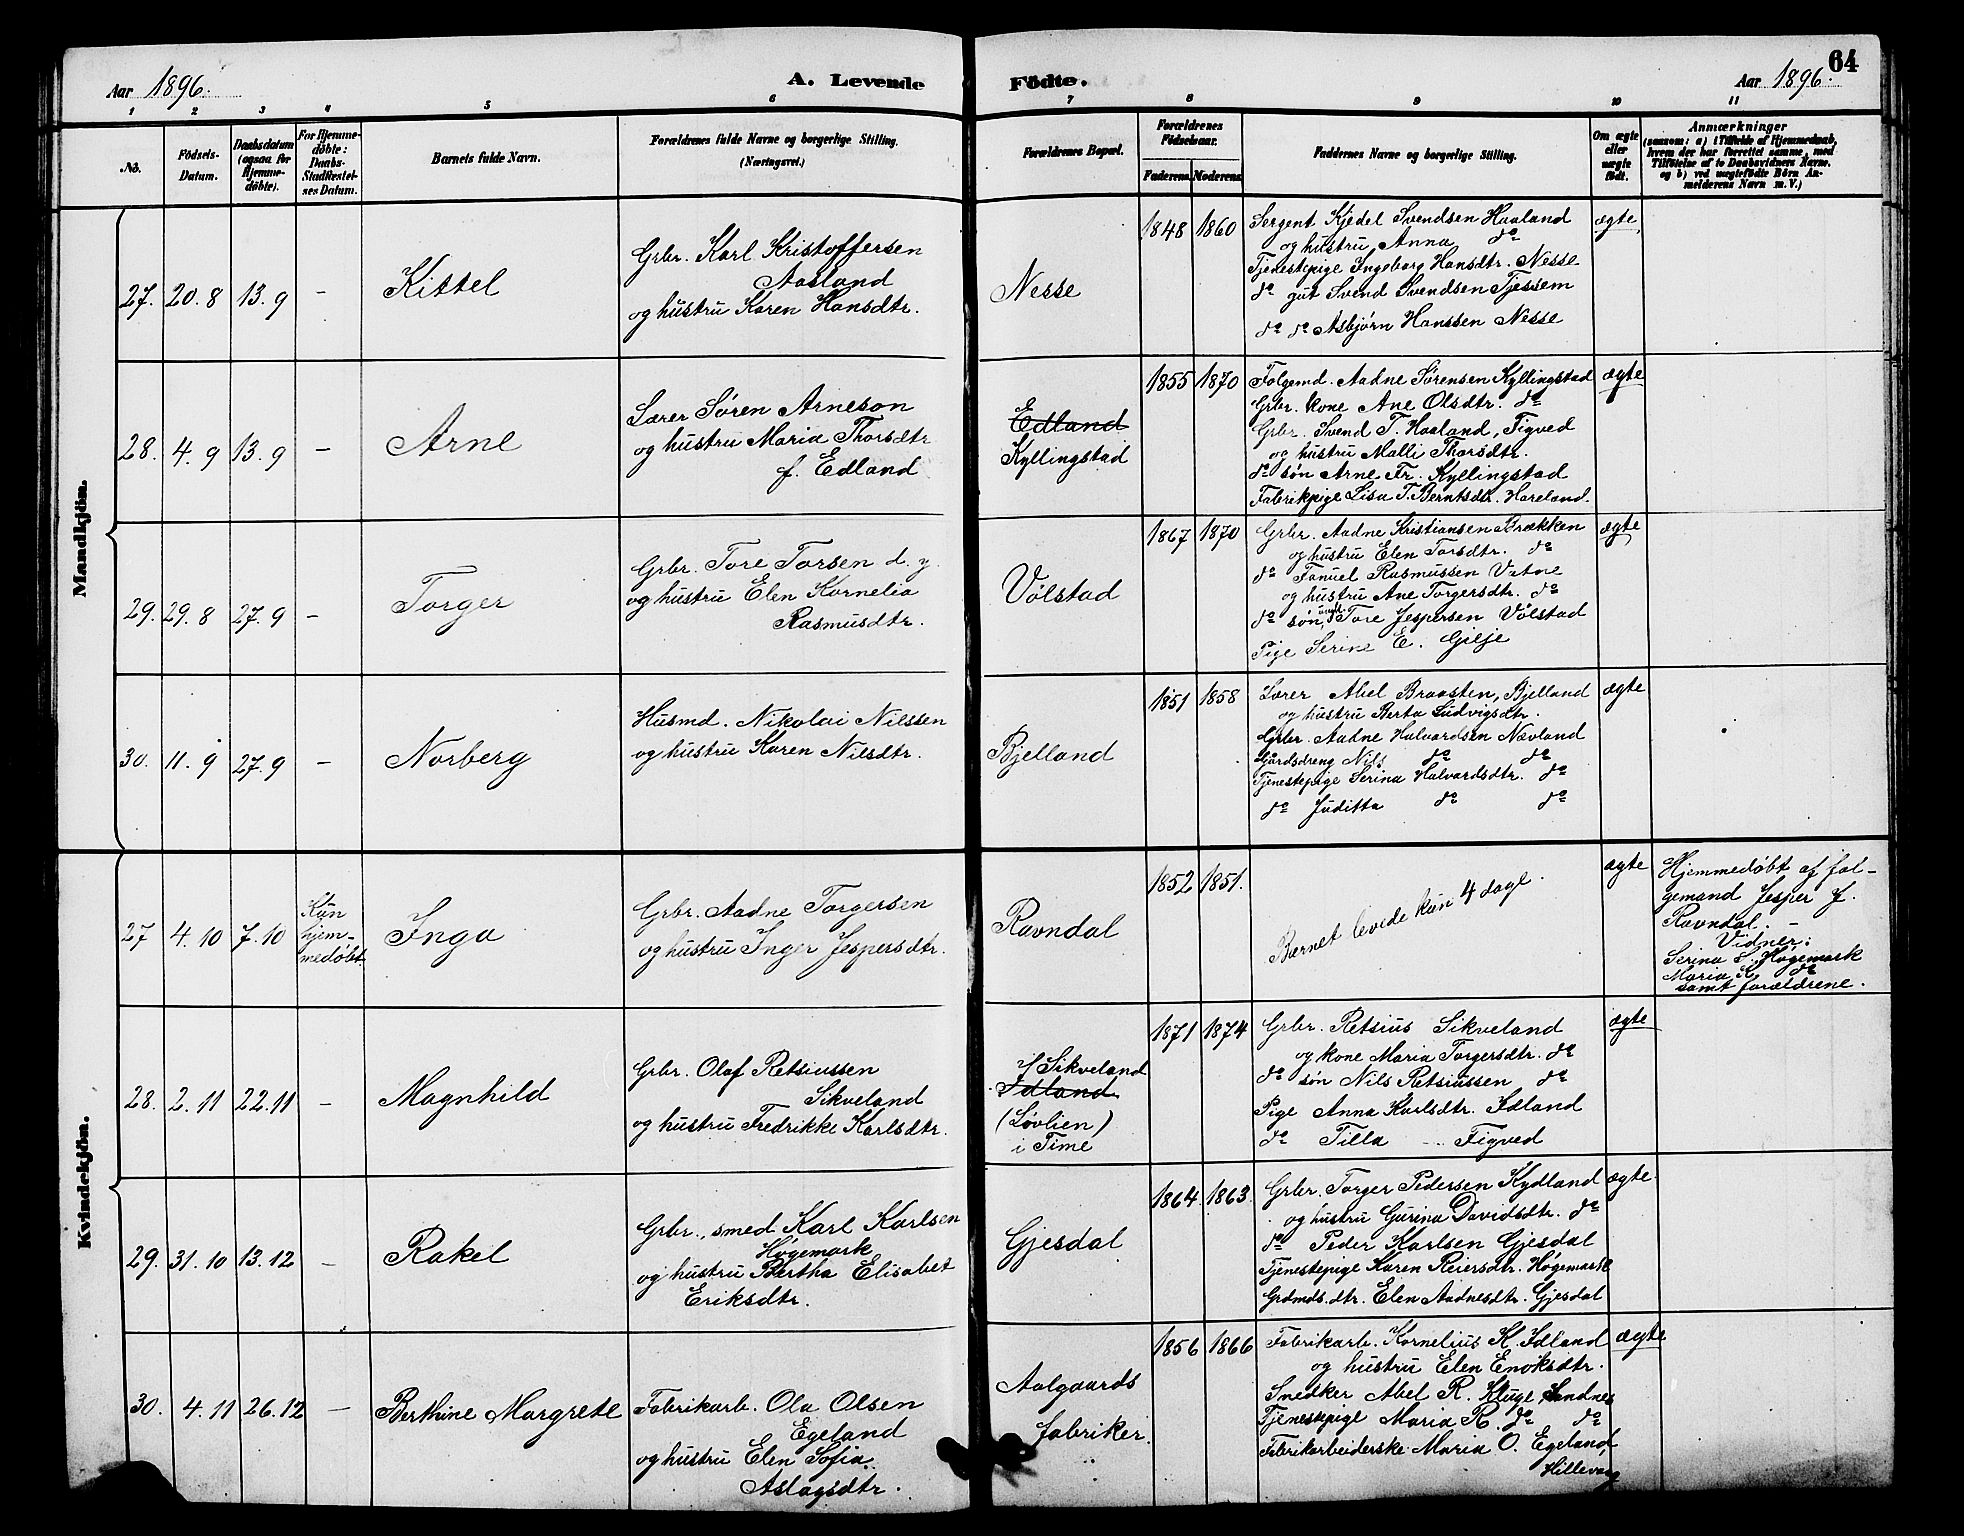 64
Aar 1896.
A. Levende Födte.
Aar 1896.
1 2 3 4 5 6 7 8 9 10 11
No.
Födsels-Datum.
Daabsdatum (ogsaa for Hjemme-döbte).
For Hjemme-döbte: Daabs-Stadfæstel-ses Datum.
Barnets fulde Navn.
Forældrenes fulde Navne og borgerlige Stilling. (Næringsvei.)
Forældrenes Bopæl.
Forældrenes Födselsaar.
Faderens. Moderens.
Faddernes Navne og borgerlige Stilling.
Om ægte eller uægte födt.
Anmærkninger
(saasom: a) i Tilfælde af Hjemmedaab, hvem der har forrettet samme, med Tilföielse af to Daabsvidners Navne, og b) ved uægtefödte Börn Anmelderens Navn m. V.)
Mandkjön.
27. 20.8 13.9 –
Kittel
Grbr. Karl Kristoffersen
Aasland
og hustru Karen Hansdtr.
Nesse
1848 1860
Sergent Kjedel Svendsen Haaland
og hustru Anna do
Tjenestepige Ingeborg Hansdtr. Nesse
do gut Svend Svendsen Tjessem
do do Asbjørn Hanssen Nesse
ægte
28. 4.9 13.9 –
Arne
Lærer Søren Arneson
og hustru Maria Thorsdtr
f. Edland
Edland
Kyllingstad
1855 1870
Folgemd. Aadne Sørensen Kyllingstad
Grbr. kone Ane Olsdtr. do
Grbr. Svend T. Haaland, Figved
og hustru Malli Thorsdtr.
do søn Arne Fr. Kyllingstad
Fabrikpige Lisa T. Berntsdtr. Hareland.
ægte
29. 29.8 27.9 –
Torger
Grbr. Tore Torsen d. y.
og hustru Elen Kornelia
Rasmusdtr.
Vølstad
1867 1870
Grbr. Aadne Kristiansen Brækken
og hustru Elen Torsdtr. do
do Fanuel Rasmussen Vatne
og hustru Ane Torgersdtr. do
do søn, Tore Jespersen Vølstad
Pige Serine E. Gilje
ægte
30. 11.9 27.9 –
Norberg
Husmd. Nikolai Nilssen
og hustru Karen Nilsdtr.
Bjelland
1851 1858
Lærer Abel Braasten, Bjelland
og hustru Berta Ludvigsdtr.
Grbr. Aadne Halvardsen Nævland
Gårdsdreng Nils do do
Tjenestepige Serina Halvardsdtr. do
do Juditta do do
ægte
Kvindekjön.
27 4.10 7.10
Kun
hjem-
medøbt
Inga
Grbr. Aadne Torgersen
og hustru Inger Jespersdtr.
Ravndal
1852 1851.
Barnet levede kun 4 dage.
ægte
Hjemmedøbt af fol-
gemand Jesper J.
Ravndal. –
Vidner:
Serina S. Høgemark
Maria K. do
samt forældrene.
28. 2.11 22.11 –
Magnhild
Grbr. Olaf Retsiussen
Sikveland
og hustru Fredrikke Karlsdtr.
Sikveland
Idland
(Løvlien)
i Time
1871 1874
Grbr. Retsius Sikveland
og kone Maria Torgersdtr. do
do søn Nils Retsiussen do
Pige Anna Karlsdtr. Idland
do Tilla – Figved
ægte
29. 31.10 13.12 –
Rakel
Grbr., smed Karl Karlsen
Høgemark
og hustru Bertha Elisabet
Eriksdtr.
Gjesdal
1864 1863.
Grbr. Torger Pedersen Kydland
og hustru Gurina Davidsdtr. do
do Peder Karlsen Gjesdal
Tjenestepige Karen Reiersdtr. Høgemark
Grdmds. dtr. Elen Aadnesdtr. Gjesdal
ægte.
30. 4.11 26.12 –
Berthine Margrete
Fabrikarb. Ola Olsen
Egeland
og hustru Elen Sofia
Aslagsdtr.
Aalgaards
fabriker.
1856 1866
Fabrikarb. Kornelius K. Idland
og hustru Elen Enoksdtr.
Snedker Abel R. Kluge, Sandnes
Tjenestepige Maria R. do do
Fabrikarbeiderske Maria O. Egeland
Hillevaag
ægte